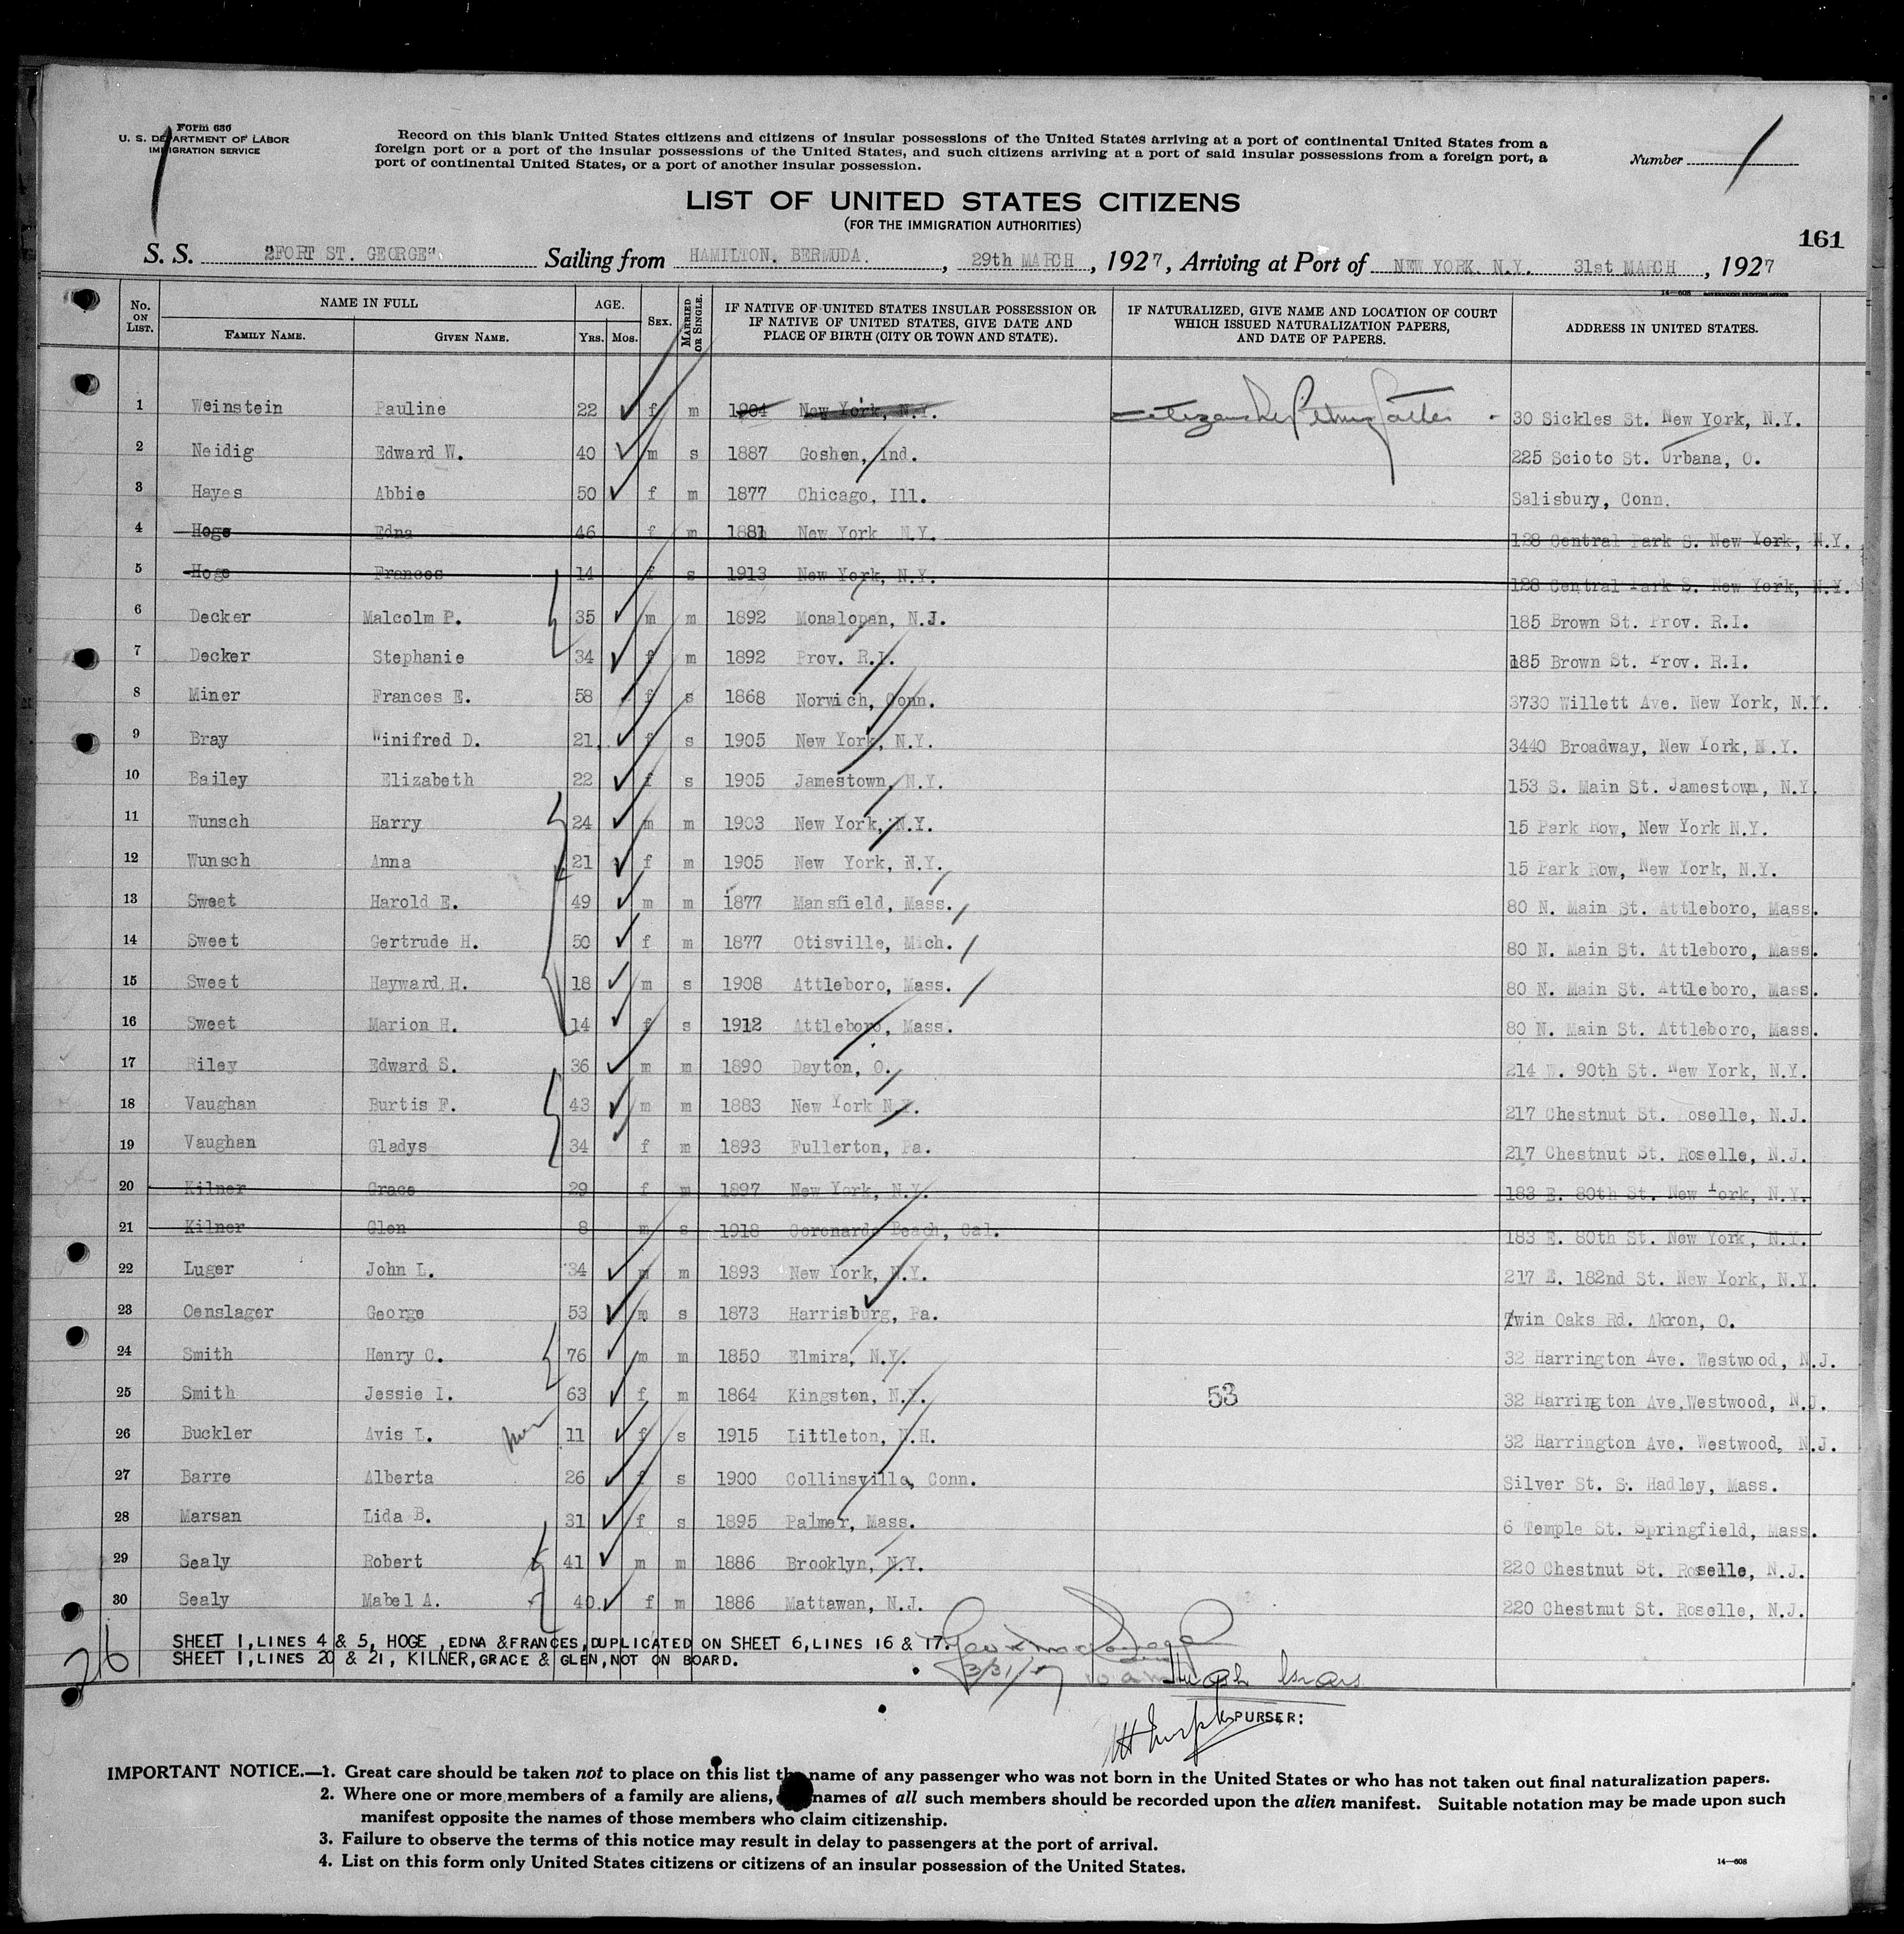 Form 630
U. S. DEPARTMENT OF LABOR
IMMIGRATION SERVICE
Record on this blank United States citizens and citizens of insular possessions of the United States arriving at a port of continental United States from a
foreign port or a port of the insular possessions of the United States, and such citizens arriving at a port of said insular possessions from a foreign port, a
port of continental United States, or a port of another insular possession.
Number 1
LIST OF UNITED STATES CITIZENS
(FOR THE IMMIGRATION AUTHORITIES)
161
S. S. "FORT ST. GEORGE". Sailing from HAMILTON. BERMUDA. , 29th MARCH , 1927, Arriving at Port of NEW YORK N.Y. 31st MARCH , 1927
No. ON LIST. NAME IN FULL FAMILY NAME. GIVEN NAME. AGE. YRS. MOS. SEX. MARRIED OR SINGLE. IF NATIVE OF UNITED STATES INSULAR POSSESSION OR IF NATIVE OF UNITED STATES, GIVE DATE AND PLACE OF BIRTH (CITY OR TOWN AND STATE). IF NATURALIZED, GIVE NAME AND LOCATION OF COURT WHICH ISSUED NATURALIZATION PAPERS, AND DATE OF PAPERS. ADDRESS IN UNITED STATES.
1 Weinstein Pauline 22 f m 1904 New York, N.Y. 30 Sickles St. New York, N.Y.
2 Neidig Edward W. 40 m s 1887 Goshen, Ind. 225 Scioto St. Urbana, O.
3 Hayes Abbie 50 f m 1877 Chicago, Ill. Salisbury, Conn.
4 Hoge Edna 46 f m 1881 New York N.Y. 128 Central Park S. New York, N.Y.
5 Hoge Frances 14 f s 1913 New York, N.Y. 128 Central Park S. New York, N.Y.
6 Decker Malcolm P. 35 m m 1892 Monalopan, N.J. 185 Brown St. Prov. R.I.
7 Decker Stephanie 34 f m 1892 Prov. R.I. 185 Brown St. Prov. R.I.
8 Miner Frances E. 58 f s 1868 Norwich, Conn. 3730 Willett Ave. New York, N.Y.
9 Bray Winifred D. 21 f s 1905 New York, N.Y. 3440 Broadway, New York, N.Y.
10 Bailey Elizabeth 22 f s 1905 Jamestown, N.Y. 153 S. Main St. Jamestown, N.Y.
11 Wunsch Harry 24 m m 1903 New York, N.Y. 15 Park Row, New York N.Y.
12 Wunsch Anna 21 f m 1905 New York, N.Y. 15 Park Row, New York, N.Y.
13 Sweet Harold E. 49 m m 1877 Mansfield, Mass. 80 N. Main St. Attleboro, Mass.
14 Sweet Gertrude H. 50 f m 1877 Otisville, Mich. 80 N. Main St. Attleboro, Mass.
15 Sweet Hayward H. 18 m s 1908 Attleboro, Mass. 80 N. Main St. Attleboro, Mass.
16 Sweet Marion H. 14 f s 1912 Attleboro, Mass. 80 N. Main St. Attleboro, Mass.
17 Riley Edward S. 36 m m 1890 Dayton, O. 214 W. 90th St. New York, N.Y.
18 Vaughan Burtis F. 43 m m 1883 New York N.Y. 217 Chestnut St. Roselle, N.J.
19 Vaughan Gladys 34 f m 1893 Fullerton, Pa. 217 Chestnut St. Roselle, N.J.
20 Kilner Grace 29 f m 1897 New York, N.Y. 183 E. 80th St. New York, N.Y.
21 Kilner Glen 8 m s 1918 Coronardo Beach, Cal. 183 E. 80th St. New York, N.Y.
22 Luger John L. 34 m m 1893 New York, N.Y. 217 E. 182nd St. New York, N.Y.
23 Oenslager George 53 m s 1873 Harrisburg, Pa. Twin Oaks Rd. Akron, O.
24 Smith Henry C. 76 m m 1850 Elmira, N.Y. 32 Harrington Ave. Westwood, N.J.
25 Smith Jessie I. 63 f m 1864 Kingston, N.Y. 53 32 Harrington Ave. Westwood, N.J.
26 Buckler Avis L. 11 f s 1915 Littleton, N.H. 32 Harrington Ave. Westwood, N.J.
27 Barre Alberta 26 f s 1900 Collinsville, Conn. Silver St. S. Hadley, Mass.
28 Marsan Lida B. 31 f s 1895 Palmer, Mass. 6 Temple St. Springfield, Mass.
29 Sealy Robert 41 m m 1886 Brooklyn, N.Y. 220 Chestnut St. Roselle, N.J.
30 Sealy Mabel A. 40. f m 1886 Mattawan, N.J. 220 Chestnut St. Roselle, N.J.
SHEET 1, LINES 4 & 5, HOGE ,EDNA & FRANCES, DUPLICATED ON SHEET 6, LINES 16 & 17.
SHEET 1, LINES 20 & 21, KILNER, GRACE & GLEN, NOT ON BOARD.
26
3/31/27
PURSER:
IMPORTANT NOTICE.—1. Great care should be taken not to place on this list the name of any passenger who was not born in the United States or who has not taken out final naturalization papers.
2. Where one or more members of a family are aliens, names of all such members should be recorded upon the alien manifest. Suitable notation may be made upon such
manifest opposite the names of those members who claim citizenship.
3. Failure to observe the terms of this notice may result in delay to passengers at the port of arrival.
4. List on this form only United States citizens or citizens of an insular possession of the United States.
14—608